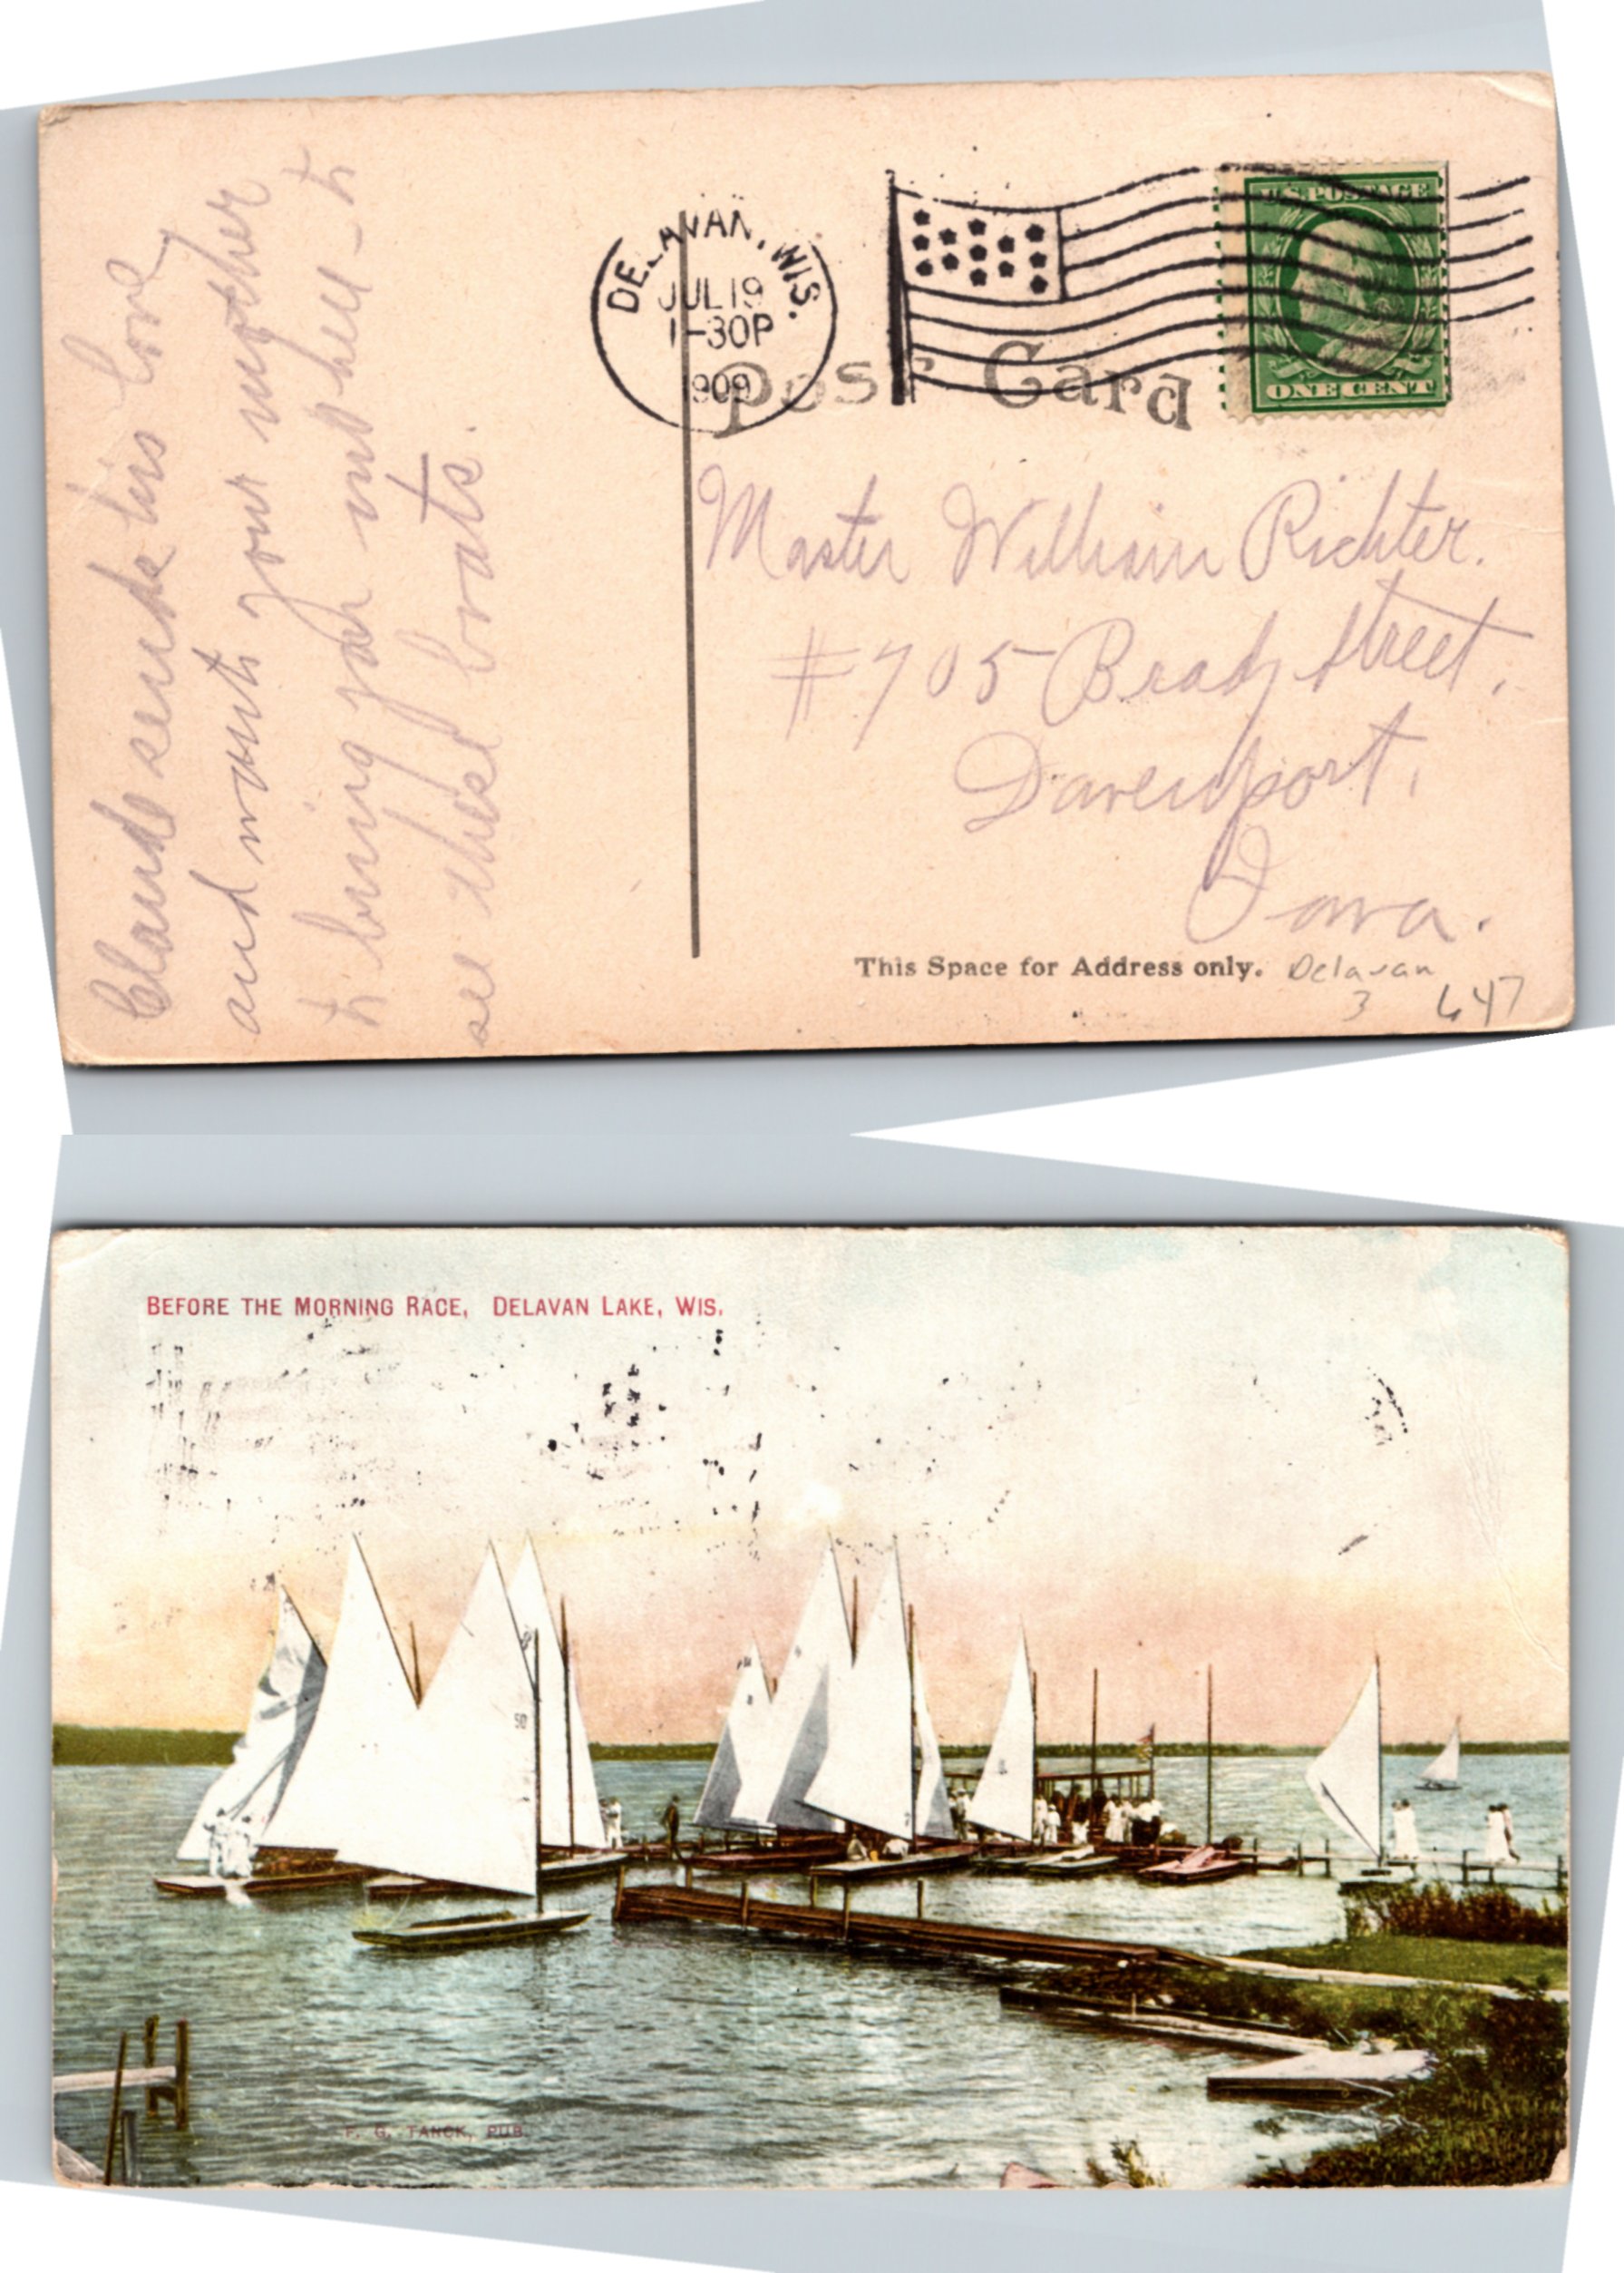 DELAVAN, WIS.
JUL 19
1-30P
1909
U.S. POSTAGE
ONE CENT
Post Card
Claude sends his love
and wants your mother
to bring you up here to
see these boats.
Master William Richter.
#705 Brady Street,
Davenport,
Iowa.
This Space for Address only.
Delavan
3 647
BEFORE THE MORNING RACE, DELAVAN LAKE, WIS.
F. G. TANCK, PUB.